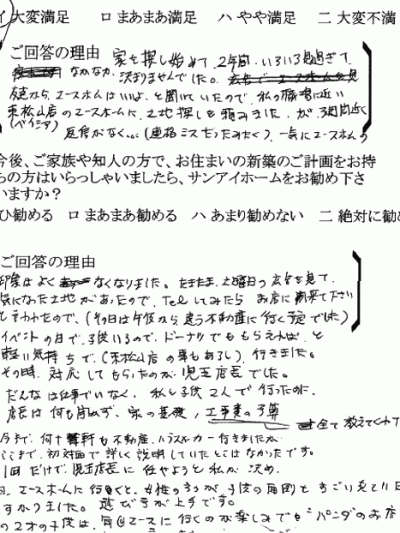 イ 大変満足 ロ まあまあ満足 ハ やや満足 ニ 大変不満
ご回答の理由 家を探し始めて、2年間、いろいろ過ぎて、
なかなか決まりませんでした。
エースホームはいいよ、と聞いていたので、私の職場に近い
東松山店のエースホームに土地探しを頼みましたが、3週間近く
返答がなく…(連絡ミスだったみたく)、一気にエースホーム
今後、ご家族や知人の方で、お住まいの新築のご計画をお持
ちの方はいらっしゃいましたら、サンアイホームをお勧め下さ
いますか?
ひ勧める ロ まあまあ勧める ハ あまり勧めない ニ 絶対に勧め
ご回答の理由
印象はよくなくなりました。たまたま、土曜日の広告を見て、
気になった土地があったので、Telしてみたら お店に来て下さい
と言われたので、(その日は午後から違う不動産に行く予定でした)
イベントの日で、子供いるので、ドーナツでももらえれば、と
軽い気持ちで、(東松山店の事もあるし)、行きました。
その時、対応してもらったのが児玉店長でした。
だんなは仕事でいなく、私と子供2人で行ったのに、
店長は何も問わず、家の基礎、工事費の予算 全て教えてくれて
今まで、何十軒も不動産、ハウスメーカー行きましたが
ここまで、初対面で詳しく説明していたとこはなかったです。
1回だけで、児玉店長に任せようと私が決め、
エースホームに行くと、女性の方が子供の面倒をすごい見て
すかりました。遊び方が上手です。
の2才の子供は、毎回エースに行くのが楽しみでも"パンダのお店